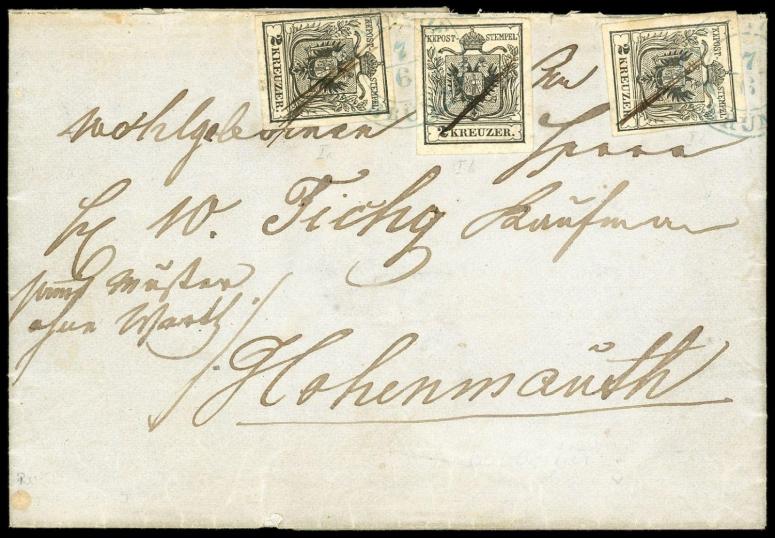 KKPOST-STEMPEL
2 KREUZER.
KKPOST-STEMPEL
2 KREUZER.
KKPOST-STEMPEL
2 KREUZER.
7
6
7
Wohlgebornen Herrn
W. Tichy Kaufman
Muster
ohne Werth
Hohenmauth